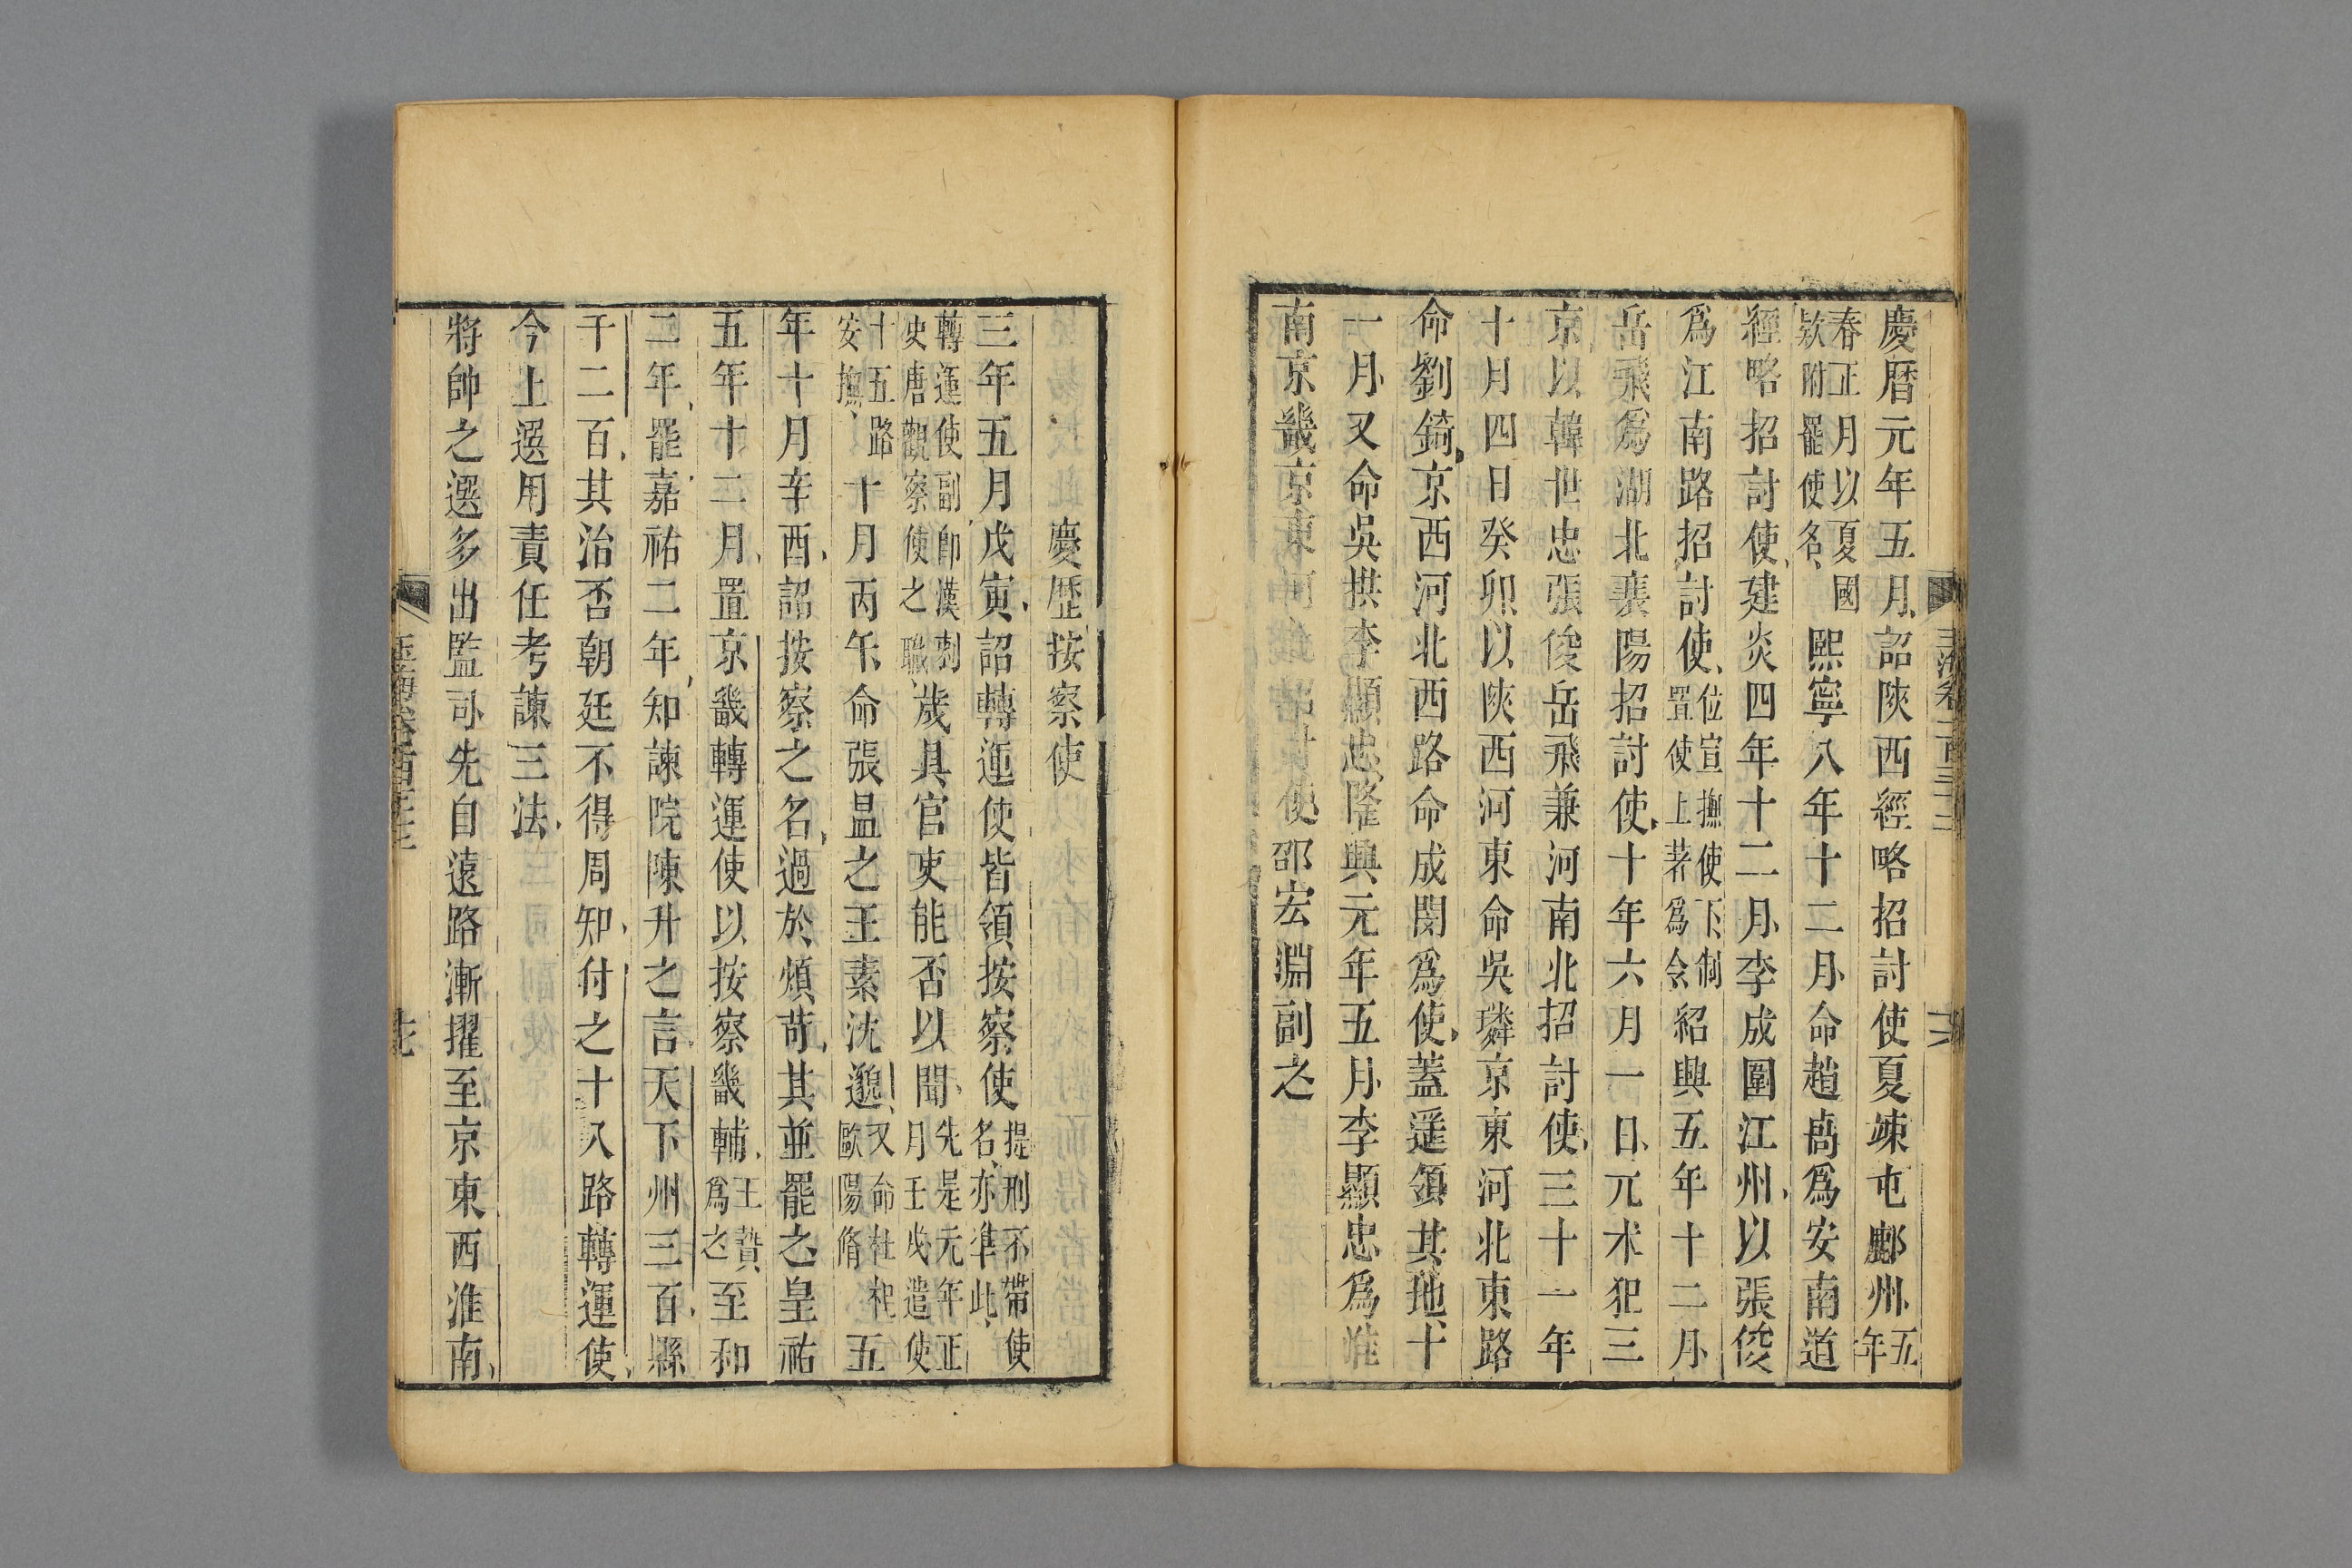 慶暦元年五月詔陜西經略招討使夏竦屯鄜州五年
春正月以夏國欵附罷使名熙寧八年十二月命趙卨爲安南道
經略招討使建炎四年十二月李成圍江州以張俊
爲江南路招討使位宣撫使下制置使上著爲令紹興五年十二月
岳飛爲湖北襄陽招討使十年六月一日兀朮犯三
京以韓世忠張俊岳飛兼河南北招討使三十一年
十月四日癸卯以陜西河東命吳璘京東河北東路
命劉錡京西河北西路命成閔爲使蓋遥領其地十
一月又命吳拱李顯忠隆興元年五月李顯忠爲淮
南京畿京東河招討使邵宏淵副之
玉海卷一百三十二
慶歷按察使
三年五月戊寅詔轉運使皆領按察使提刑不帶使名亦準此
轉運使副即漢刺史唐觀察使之職歲具官吏能否以聞先是元年正月壬戌遣使
十五路安撫十月丙午命張昷之王素沈邈又命杜杞歐陽脩五
年十月辛酉詔按察之名過於煩苛其並罷之皇祐
五年十二月置京畿轉運使以按察畿輔王贄爲之至和
二年罷嘉祐二年知諫院陳升之言天下州三百縣
千二百其治否朝廷不得周知付之十八路轉運使
今上選用責任考課三法
將帥之選多出監司先自遠路漸擢至京東西淮南